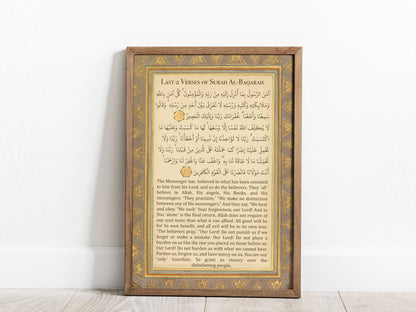 LAST 2 VERSES OF SURAH AL-BAQARAH
آمَنَ الرَّسُولُ بِمَا أُنزِلَ إِلَيْهِ مِن رَّبِّهِ وَالْمُؤْمِنُونَ ۚ كُلٌّ آمَنَ بِاللَّهِ
وَمَلَائِكَتِهِ وَكُتُبِهِ وَرُسُلِهِ لَا نُفَرِّقُ بَيْنَ أَحَدٍ مِّن رُّسُلِهِ ۚ وَقَالُوا
سَمِعْنَا وَأَطَعْنَا ۖ غُفْرَانَكَ رَبَّنَا وَإِلَيْكَ الْمَصِيرُ
لَا يُكَلِّفُ اللَّهُ نَفْسًا إِلَّا وُسْعَهَا ۚ لَهَا مَا كَسَبَتْ وَعَلَيْهَا مَا
اكْتَسَبَتْ ۗ رَبَّنَا لَا تُؤَاخِذْنَا إِن نَّسِينَا أَوْ أَخْطَأْنَا ۚ رَبَّنَا وَلَا
تَحْمِلْ عَلَيْنَا إِصْرًا كَمَا حَمَلْتَهُ عَلَى الَّذِينَ مِن قَبْلِنَا ۚ رَبَّنَا وَلَا
تُحَمِّلْنَا مَا لَا طَاقَةَ لَنَا بِهِ ۖ وَاعْفُ عَنَّا وَاغْفِرْ لَنَا وَارْحَمْنَا ۚ
أَنتَ مَوْلَانَا فَانصُرْنَا عَلَى الْقَوْمِ الْكَافِرِينَ
The Messenger has believed in what has been revealed
to him from his Lord, and so do the believers. They 'all'
believe in Allah, His angels, His Books, and His
messengers. "They proclaim," "We make no distinction
between any of His messengers." And they say, "We hear
and obey. "We seek' Your forgiveness, our Lord! And to
You 'alone' is the final return. Allah does not require of
any soul more than what it can afford. All good will be
for its own benefit, and all evil will be to its own loss.
'The believers pray,' "Our Lord! Do not punish us if we
forget or make a mistake. Our Lord! Do not place a
burden on us like the one you placed on those before us.
Our Lord! Do not burden us with what we cannot bear.
Pardon us, forgive us, and have mercy on us. You are our
'only' Guardian. So grant us victory over the
disbelieving people.